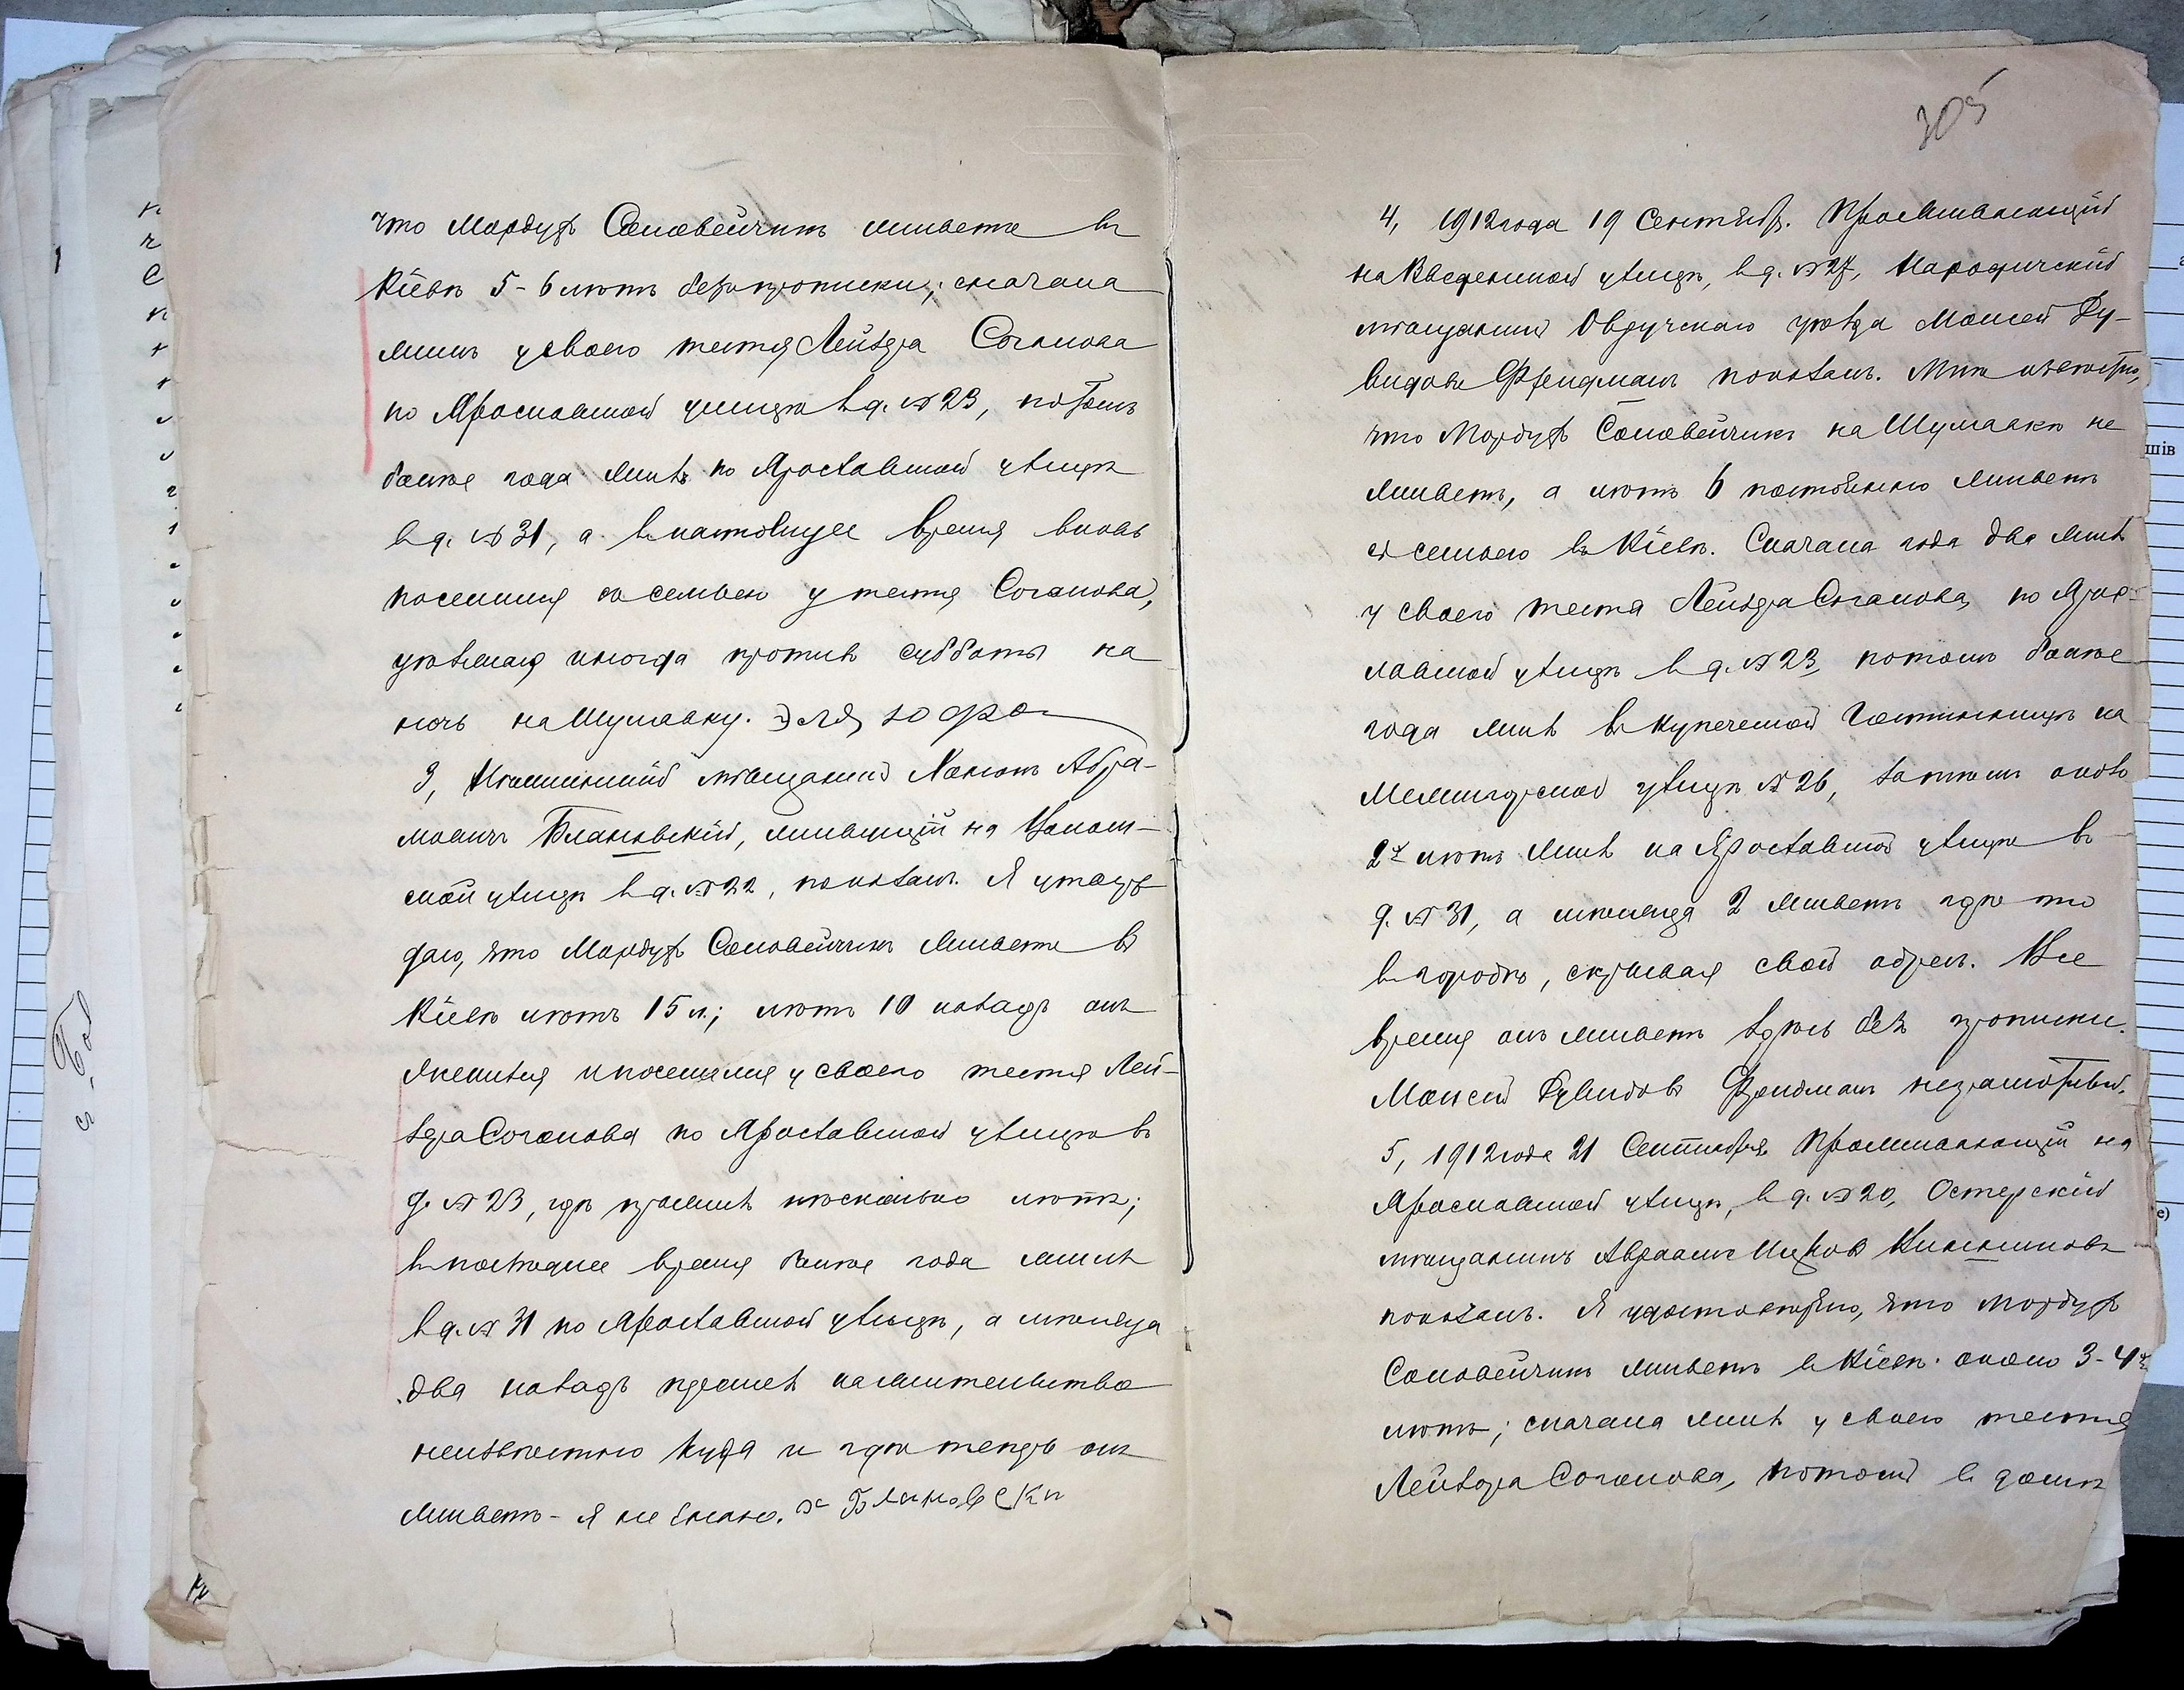 что Мордух Соловейчикъ живетъ въ
Кіевѣ 5-6 лѣтъ безъ прописки; сначала
жилъ у своего тестя Лейзера Соганова
по Ярославской улицѣ въ д. № 23, потомъ
болѣе года жилъ по Ярославской улицѣ
въ д. № 31, а въ настоящее время вновь
поселился съ семьею у тестя Соганова,
уѣзжая иногда противъ субботы на
ночь на Шулявку. Эля
3, мѣщанинъ Абра-
мовичъ Блановскій, живущій на
ской улицѣ въ д. № 22, показалъ. Я утвер-
даю, что Мордух Соловейчикъ живетъ въ
Кіевѣ лѣтъ 15 л.; лѣтъ 10 назадъ онъ
женился и поселился у своего тестя Лей-
зера Соганова по Ярославской улицѣ въ
д. № 23, гдѣ прожилъ нѣсколько лѣтъ;
въ последнее время болѣе года жилъ
въ д. № 31 по Ярославской улицѣ, а мѣсяца
два назадъ на жительство
неизвѣстно куда и гдѣ теперь онъ
живетъ - я не знаю. Х Блановски
305
4, 1912 года 19 Сентября. Проживающій
на Введенской улицѣ, въ д. № 27, Народичскій
мѣщанинъ Овручскаго уѣзда Моисей Ду-
видовъ Фридманъ показалъ. Мнѣ извѣстно,
что Мордух Соловейчикъ на Шулявкѣ не
живетъ, а лѣтъ 6 постоянно живетъ
съ семьею въ Кіевѣ. Сначала года два жилъ
у своего тестя Лейзера Соганова, по Яро-
лавской улицѣ въ д. № 23, потомъ болѣе
года жилъ въ Купеческой Гостинницѣ на
Межигорской улицѣ № 26, затѣмъ около
2х лѣтъ жилъ на Ярославской улицѣ въ
д. № 31, а мѣсяца 2 живетъ гдѣ то
въ городѣ, скрывая свой адресъ. Все
время онъ живетъ здѣсь безъ прописки.
Моисей Дувидовъ Фридманъ неграмотный.
5, 1912 года 21 Сентября Проживающій на
Ярославской улицѣ, въ д. № 20, Остерскій
мѣщанинъ Авраамъ Ицков
показалъ. Я удостовѣряю, что Мордух
Соловейчикъ живетъ въ Кіевѣ около 3-4х
лѣтъ; сначала жилъ у своего тестя
Лейзера Соганова, потомъ въ домѣ